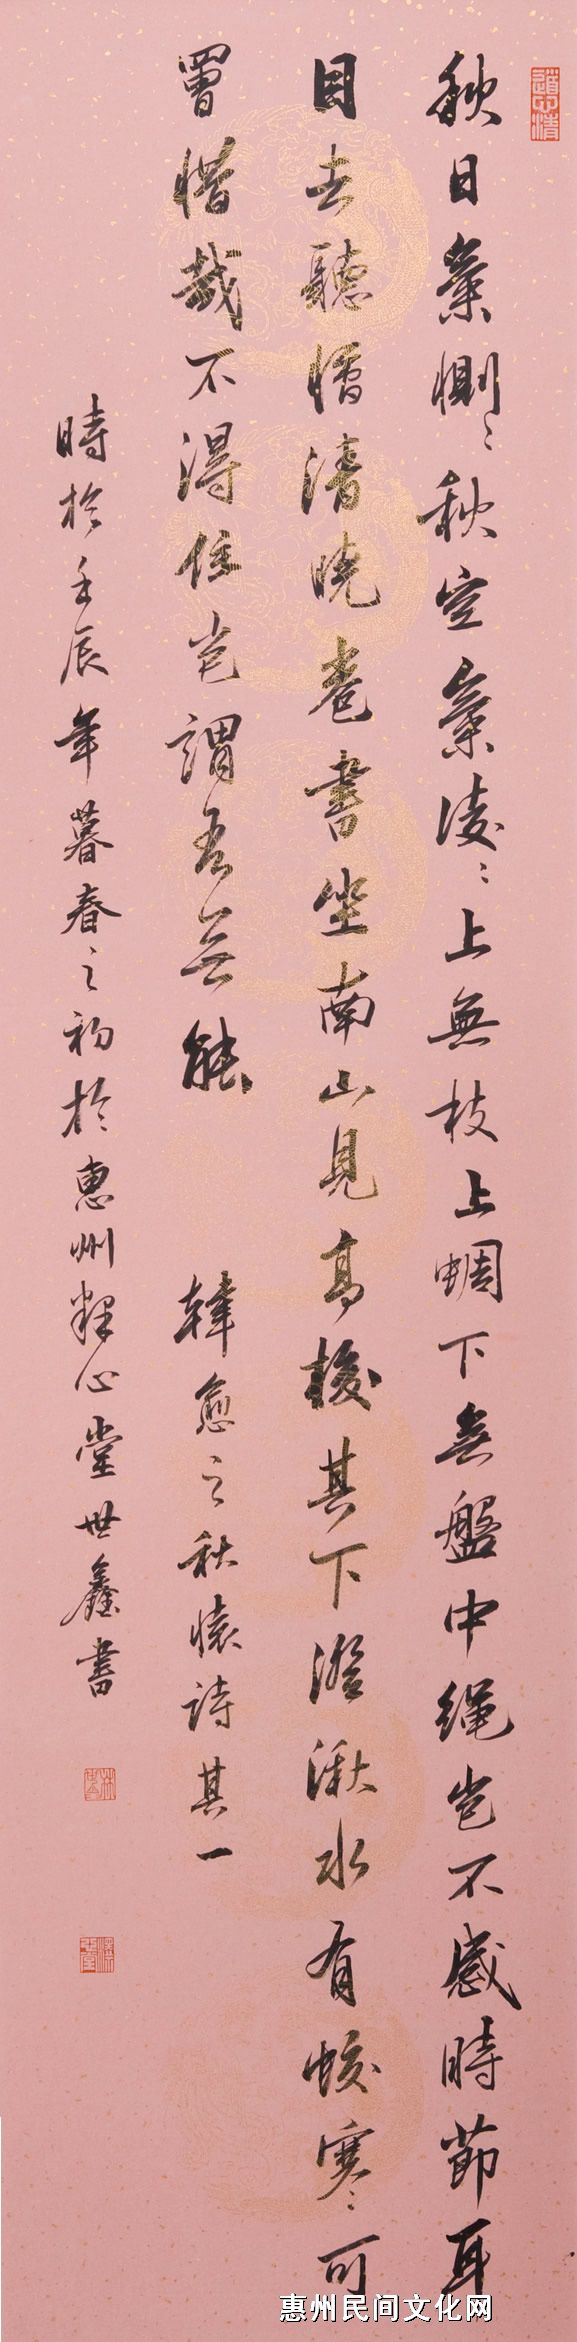 道心清
秋日氣惻〻秋空氣淩〻上無枝上蜩下無盤中繩豈不感時節耳
目去聽憎清曉卷書坐南山見高棱其下澄湫水有蛟寒〻可
罾惜哉不得住豈謂吾無能 韓愈之秋懷詩其一
時於壬辰年暮春之初於惠州釋心堂世鑫書
惠州民间文化网